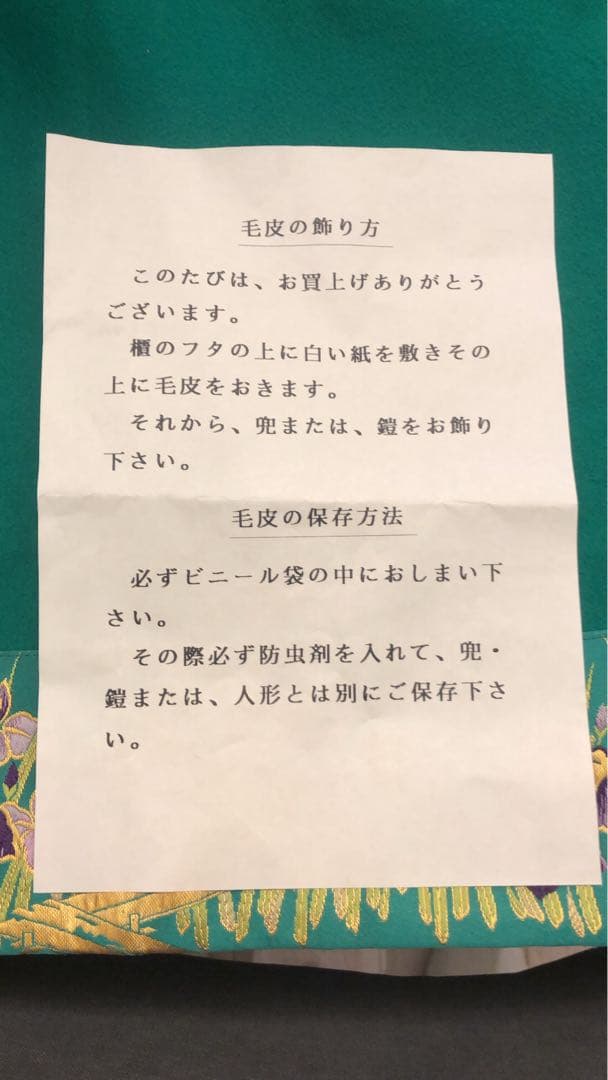 毛皮の飾り方
このたびは、お買上げありがとう
ございます。
櫃のフタの上に白い紙を敷きその
上に毛皮をおきます。
それから、兜または、鎧をお飾り
下さい。
毛皮の保存方法
必ずビニール袋の中におしまい下
さい。
その際必ず防虫剤を入れて、兜・
鎧または、人形とは別にご保存下さ
い。